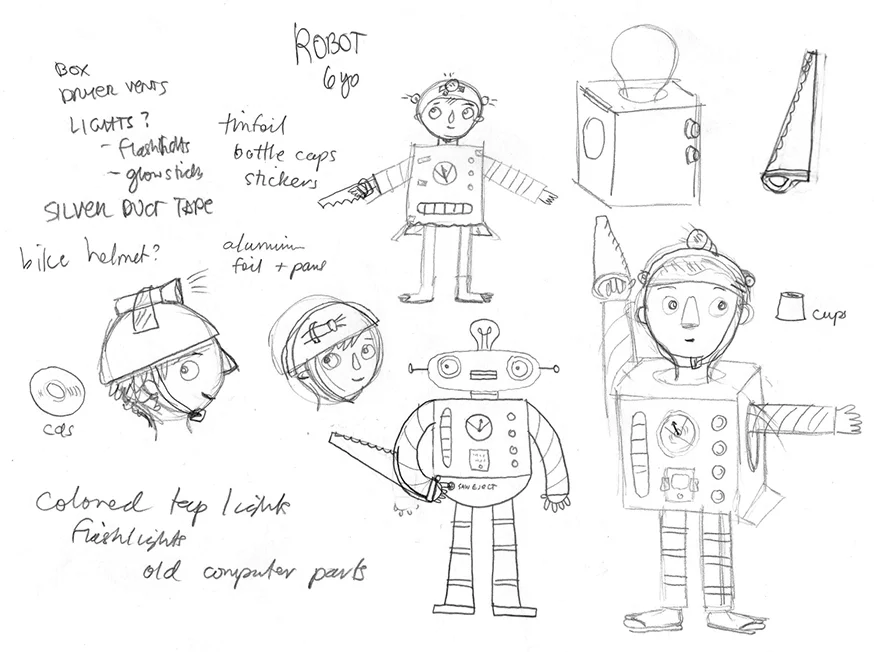 ROBOT
6 yo
BOX
DRYER VENTS
LIGHTS?
- flashlights
- glowsticks
SILVER DUCT TAPE
bike helmet?
tinfoil
bottle caps
stickers
aluminum
foil + pans
cups
cds
SAW EJECT
colored tap lights
flashlights
old computer parts